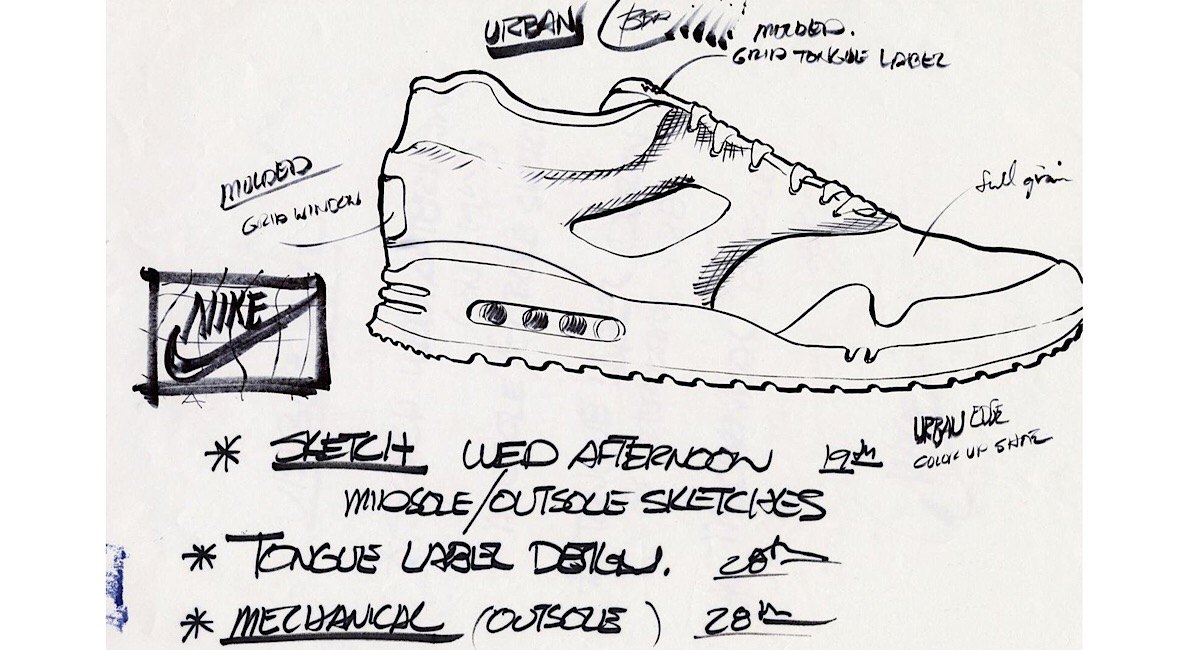 URBAN
MOLDED.
GRID TONGUE LABEL
MOLDED
GRID WINDOW
full grain
NIKE
URBAN EDGE
COLOR UP
* SKETCH WED AFTERNOON 19th
MIDSOLE/OUTSOLE SKETCHES
* TONGUE LABEL DESIGN. 28th
* MECHANICAL (OUTSOLE) 28th